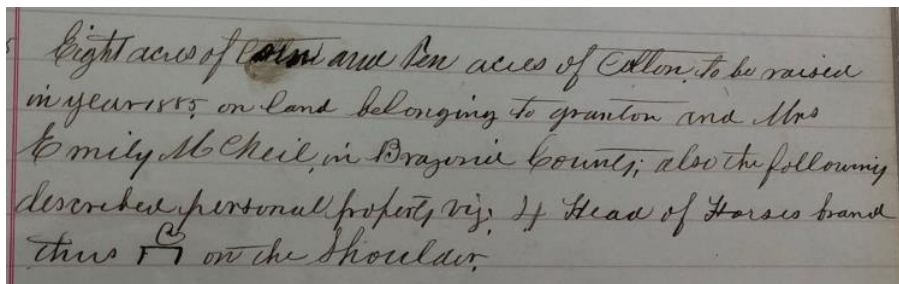 Eight acres of Corn and Ten acres of Cotton, to be raised
in year 1885, on land belonging to grantor and Mrs
Emily McNeil, in Brazoria County; also the following
described personal property viz: 4 Head of Horses brand
thus on the Shoulder.